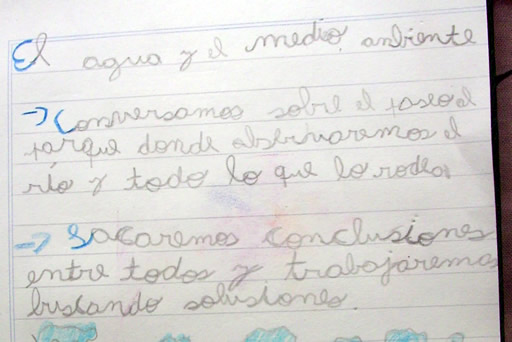 El agua y el medio anbiente
→ Conversamos sobre el paseo al
parque donde observaremos el
río y todo lo que lo rodea
→ Sacaremos conclusiones
entre todos y trabajaremos
buscando solusiones.